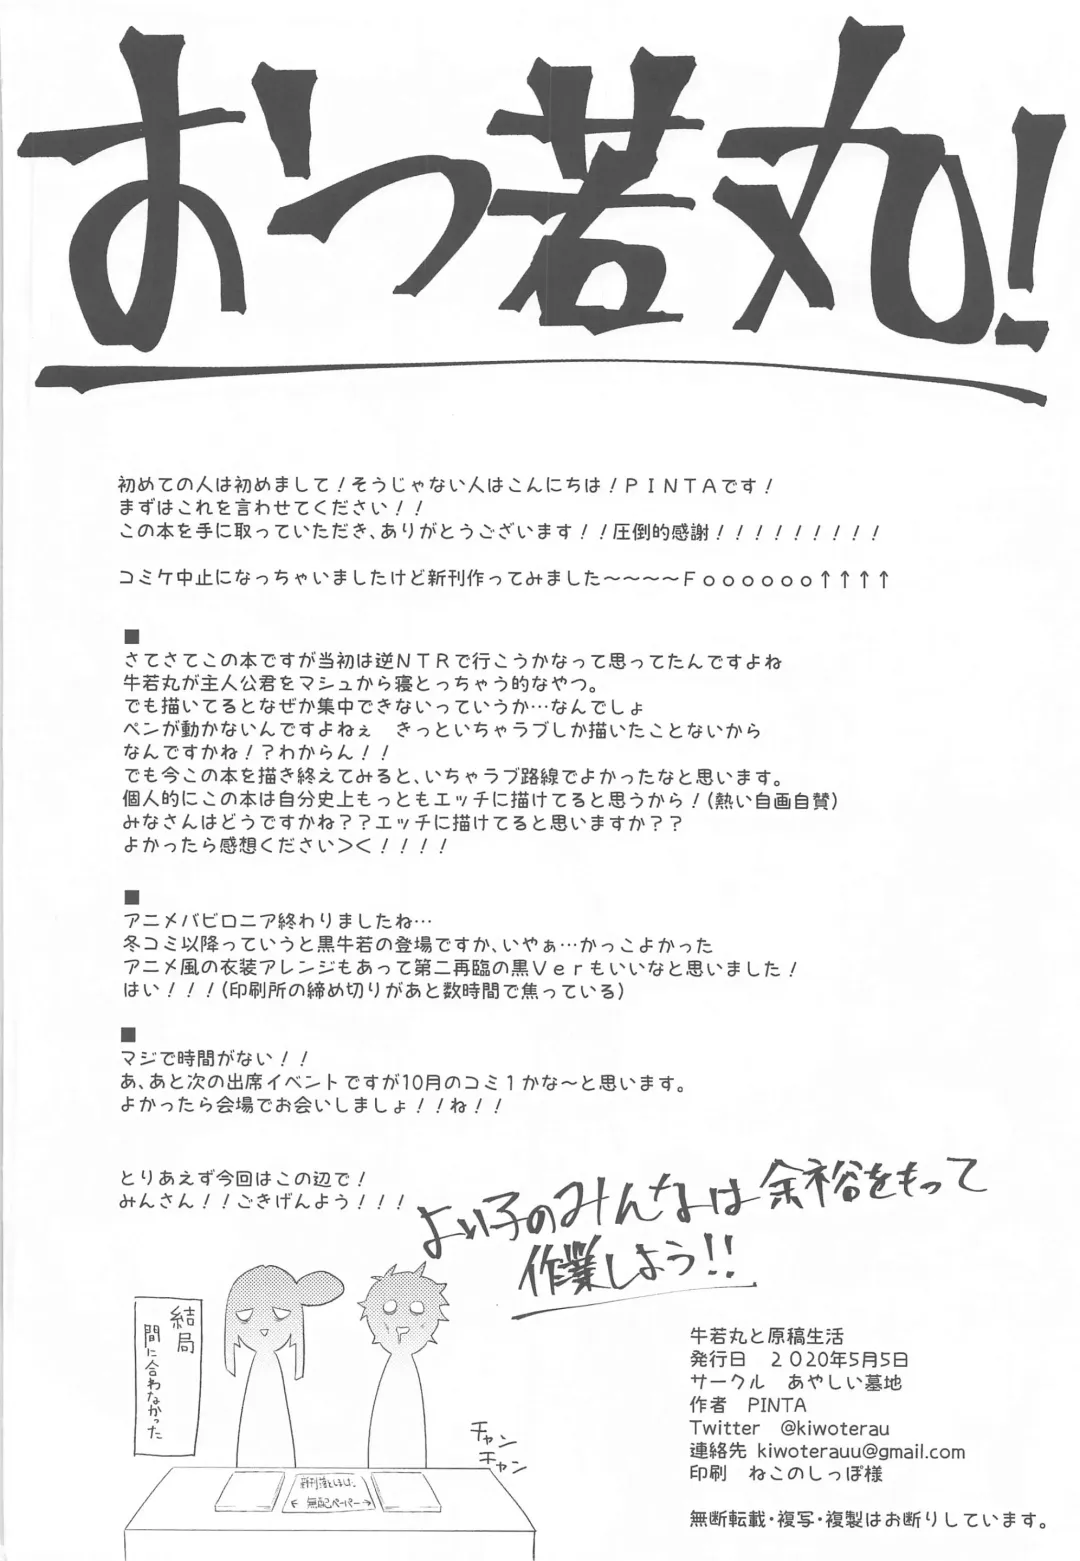 おつ若丸!
初めての人は初めまして!そうじゃない人はこんにちは!PINTAです!
まずはこれを言わせてください!!
この本を手に取っていただき、ありがとうございます!!圧倒的感謝!!!!!!!!!
コミケ中止になっちゃいましたけど新刊作ってみました~~~~Foooooo↑↑↑↑
■
さてさてこの本ですが当初は逆NTRで行こうかなって思ってたんですよね
牛若丸が主人公君をマシュから寝とっちゃう的なやつ。
でも描いてるとなぜか集中できないっていうか…なんでしょ
ペンが動かないんですよねぇ　きっといちゃラブしか描いたことないから
なんですかね!?わからん!!
でも今この本を描き終えてみると、いちゃラブ路線でよかったなと思います。
個人的にこの本は自分史上もっともエッチに描けてると思うから!(熱い自画自賛)
みなさんはどうですかね??エッチに描けてると思いますか??
よかったら感想ください><!!!!
■
アニメバビロニア終わりましたね…
冬コミ以降っていうと黒牛若の登場ですか、いやぁ…かっこよかった
アニメ風の衣装アレンジもあって第二再臨の黒Verもいいなと思いました!
はい!!!(印刷所の締め切りがあと数時間で焦っている)
■
マジで時間がない!!
あ、あと次の出席イベントですが10月のコミ1かな~と思います。
よかったら会場でお会いしましょ!!ね!!
とりあえず今回はこの辺で!
みんさん!!ごきげんよう!!!
よい子のみんなは余裕をもって
作業しよう!!
結局
間に合わなかった
チャン
チャン
新刊落としました
← 無配ペーパー→
牛若丸と原稿生活
発行日　2020年5月5日
サークル　あやしい墓地
作者　PINTA
Twitter　@kiwoterau
連絡先 kiwoterauu@gmail.com
印刷　ねこのしっぽ様
無断転載・複写・複製はお断りしています。